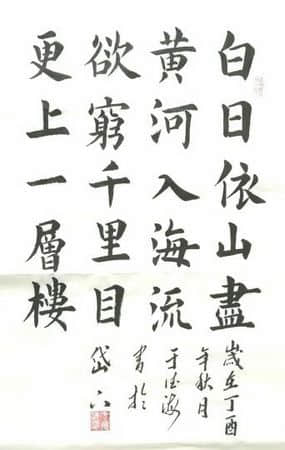 白日依山盡
黃河入海流
欲窮千里目
更上一層樓
歲在丁酉
年秋月
于德海
書於
岱下